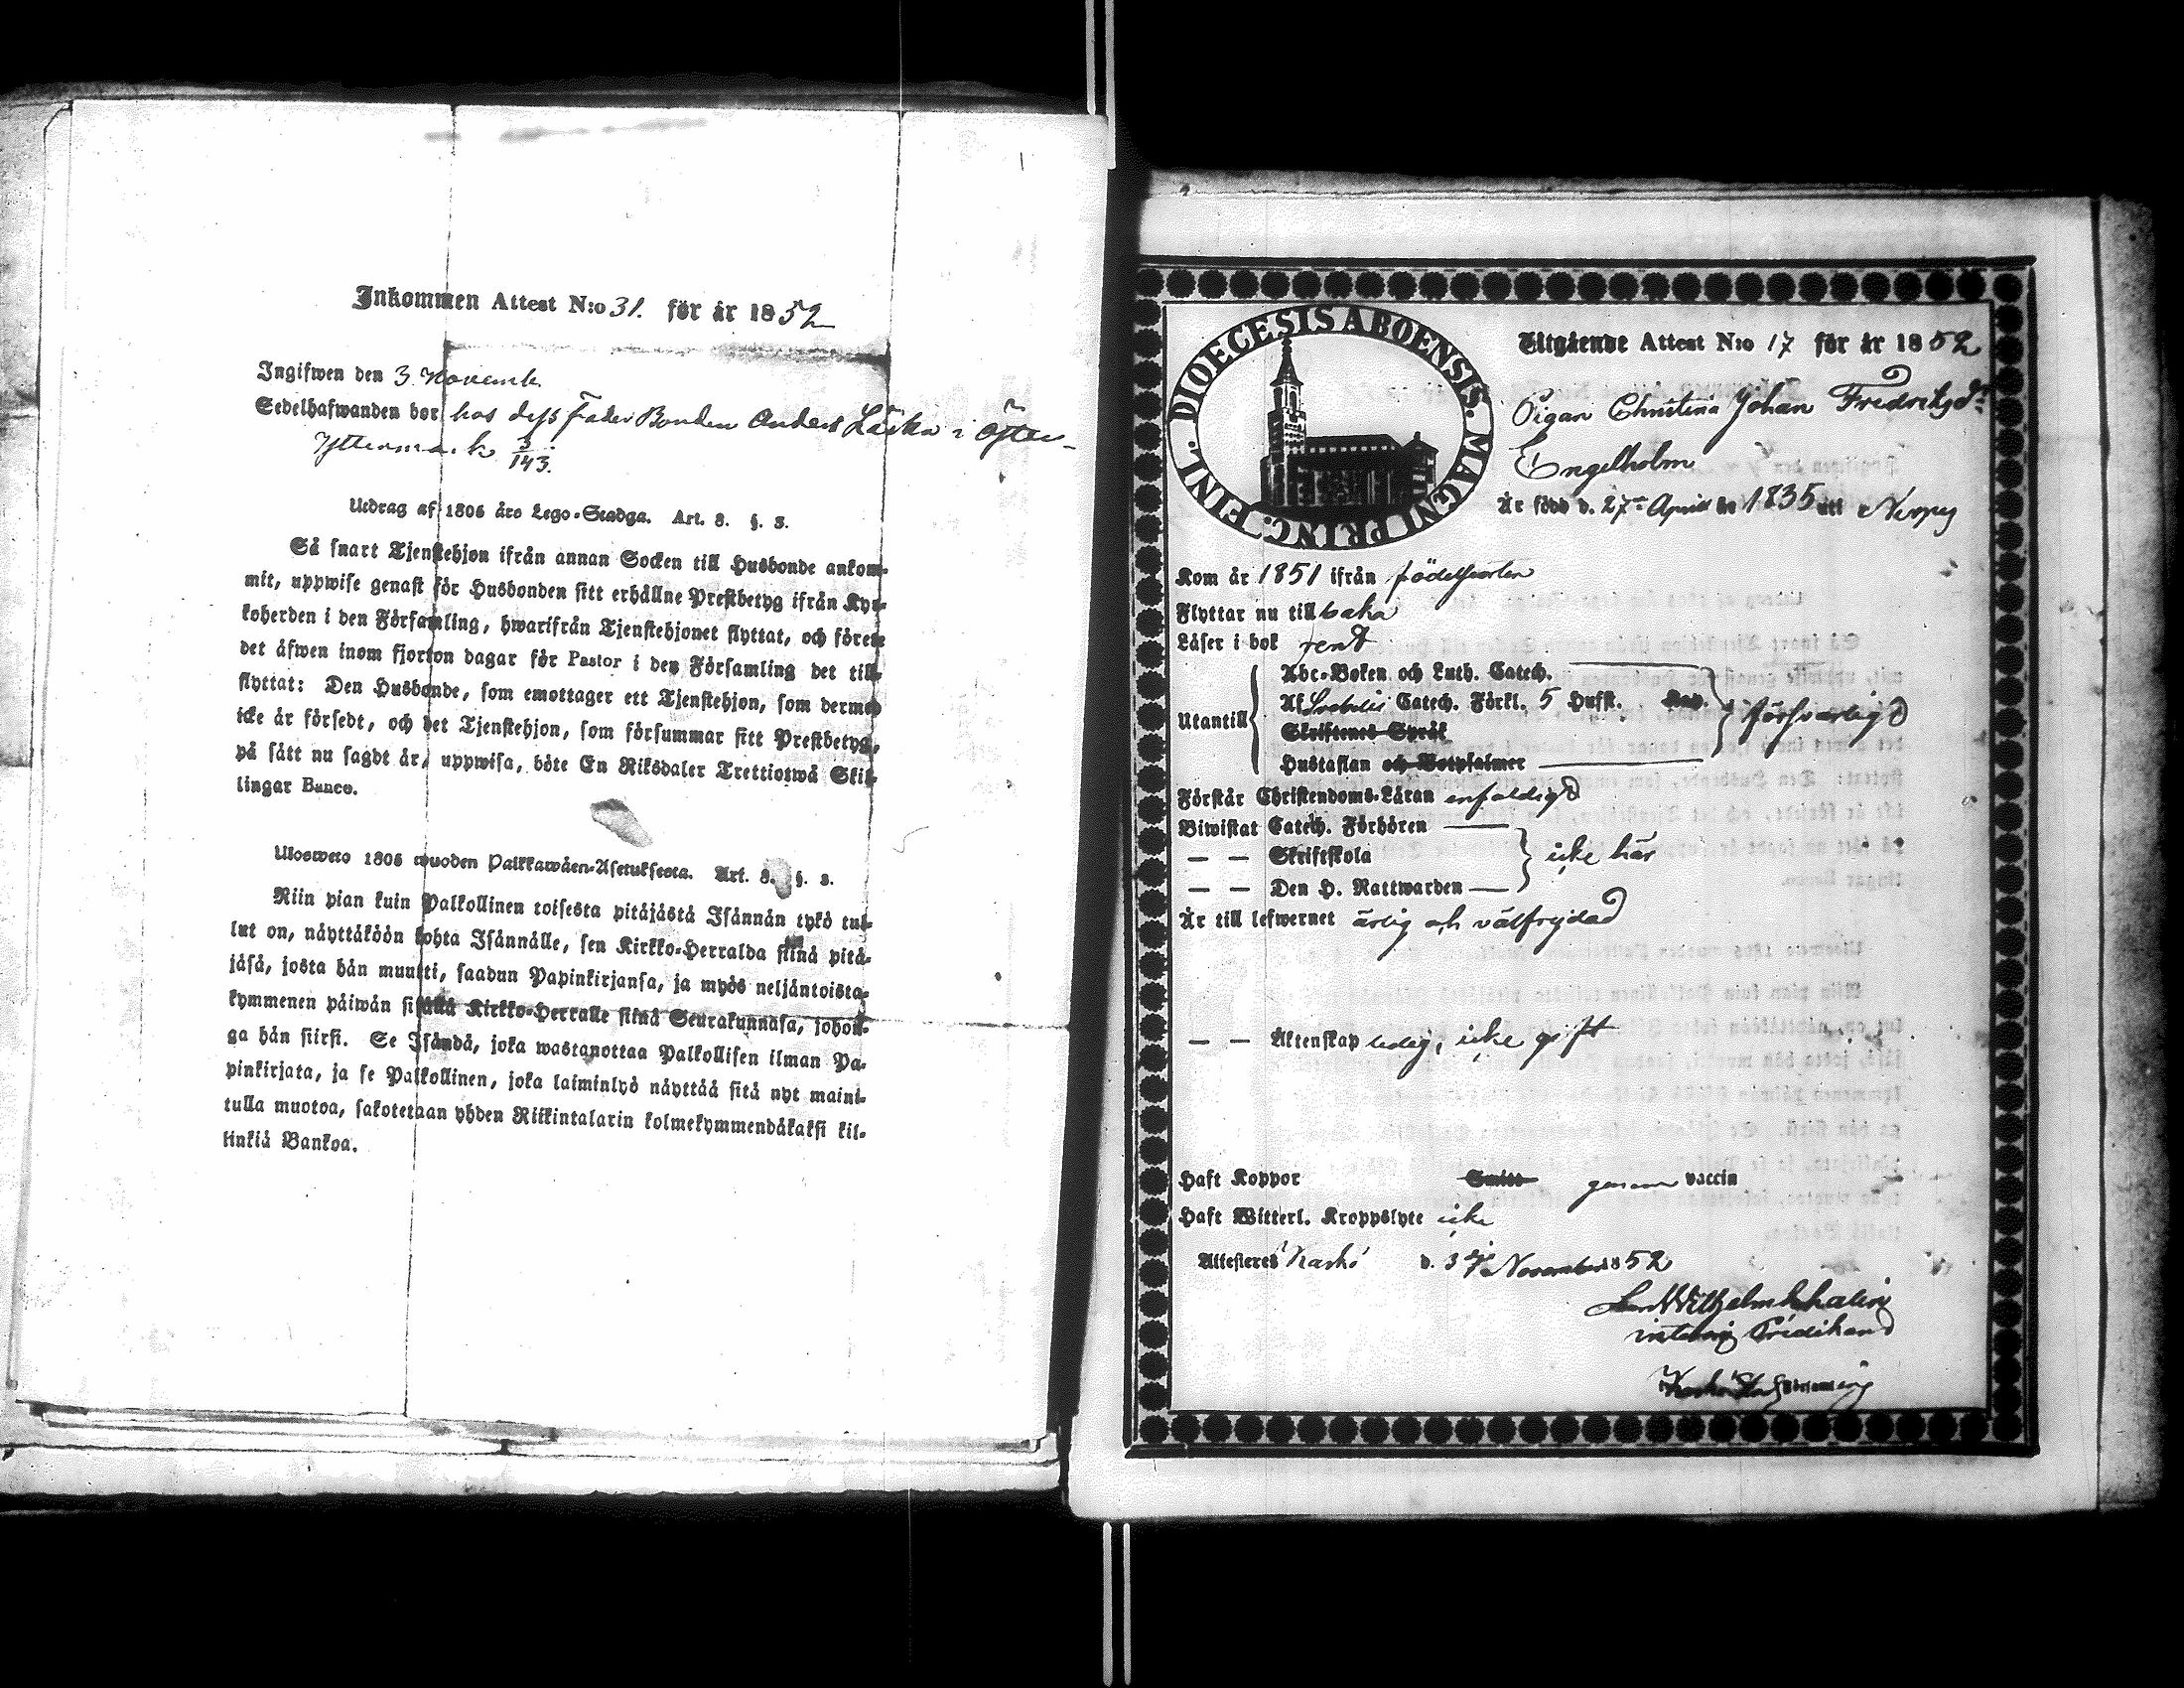 Inkommen Attest N:o 31. för år 1852
Ingifwen den 3 Novemb.
Sedelhafwanden bor hos dess fader Bonden Anders Läska i Öfter-
Yttermark 3/143.
Utdrag af 1805 års Lego-Stadga. Art. 8. §. 3.
Så snart Tjenstehjon ifrån annan Socken till Husbonde ankom-
mit, uppwise genast för Husbonden sitt erhållne Prestbetyg ifrån Kyr-
koherden i den Församling, hwarifrån Tjenstehjonet flyttat, och förete
det äfwen inom fjorton dagar för Pastor i den Församling det till-
flyttat: Den Husbonde, som emottager ett Tjenstehjon, som dermed
icke är försedt, och det Tjenstehjon, som försummar sitt Prestbetyg,
på sätt nu sagdt är, uppwisa, böte En Riksdaler Trettiotwå Skil-
lingar Banco.
Ulosweto 1805 wuoden Palkkawäen-Asetuksesta. Art. 8. §. 3.
Niin pian kuin Palkollinen toisesta pitäjästä Isännän tykö tul-
lut on, näyttäköön kohta Isännälle, sen Kirkko-Herralda siinä pitä-
jäsä, josta hän muutti, saadun Papinkirjansa, ja myös neljäntoista-
kymmenen päiwän sisällä Kirkko-Herralle siinä Seurakunnasa, johon-
ga hän siirsi. Se Isändä, joka wastanottaa Palkollisen ilman Pa-
pinkirjata, ja se Palkollinen, joka laiminlyö näyttää sitä nyt maini-
tulla muotoa, sakotetaan yhden Riikintalarin kolmekymmendäkaksi kil-
linkiä Bankoa.
DIOECESIS ABOENSIS. MAGNI PRINC. FINL.
Utgående Attest N:o 17 för år 1852
Pigan Christina Johan Fredriksdr
Engelholm
Är född d. 27de April år 1835 uti Nerpes
Kom år 1851 ifrån födelseorten
Flyttar nu tillbaka
Läser i bok rent
Utantill
Abc-Boken och Luth. Catech.
Af Svebelii Catech. Förkl. 5 Hufst. Kap.
Skriftenes Språk
Hustaflan och Botpsalmer
försvarligt
Förstår Christendoms-Läran enfaldigt
Biwistat Catech. Förhören
— — Skriftskola
— — Den H. Nattwarden
icke här
Är till lefwernet ärlig och välfrejdad
— — Äktenskap ledig, icke gift
Haft Koppor Smitt genom vaccin
Haft Witterl. Kroppslyte icke
Attesteres Kaskö d. 3 November 1852
interims Predikand